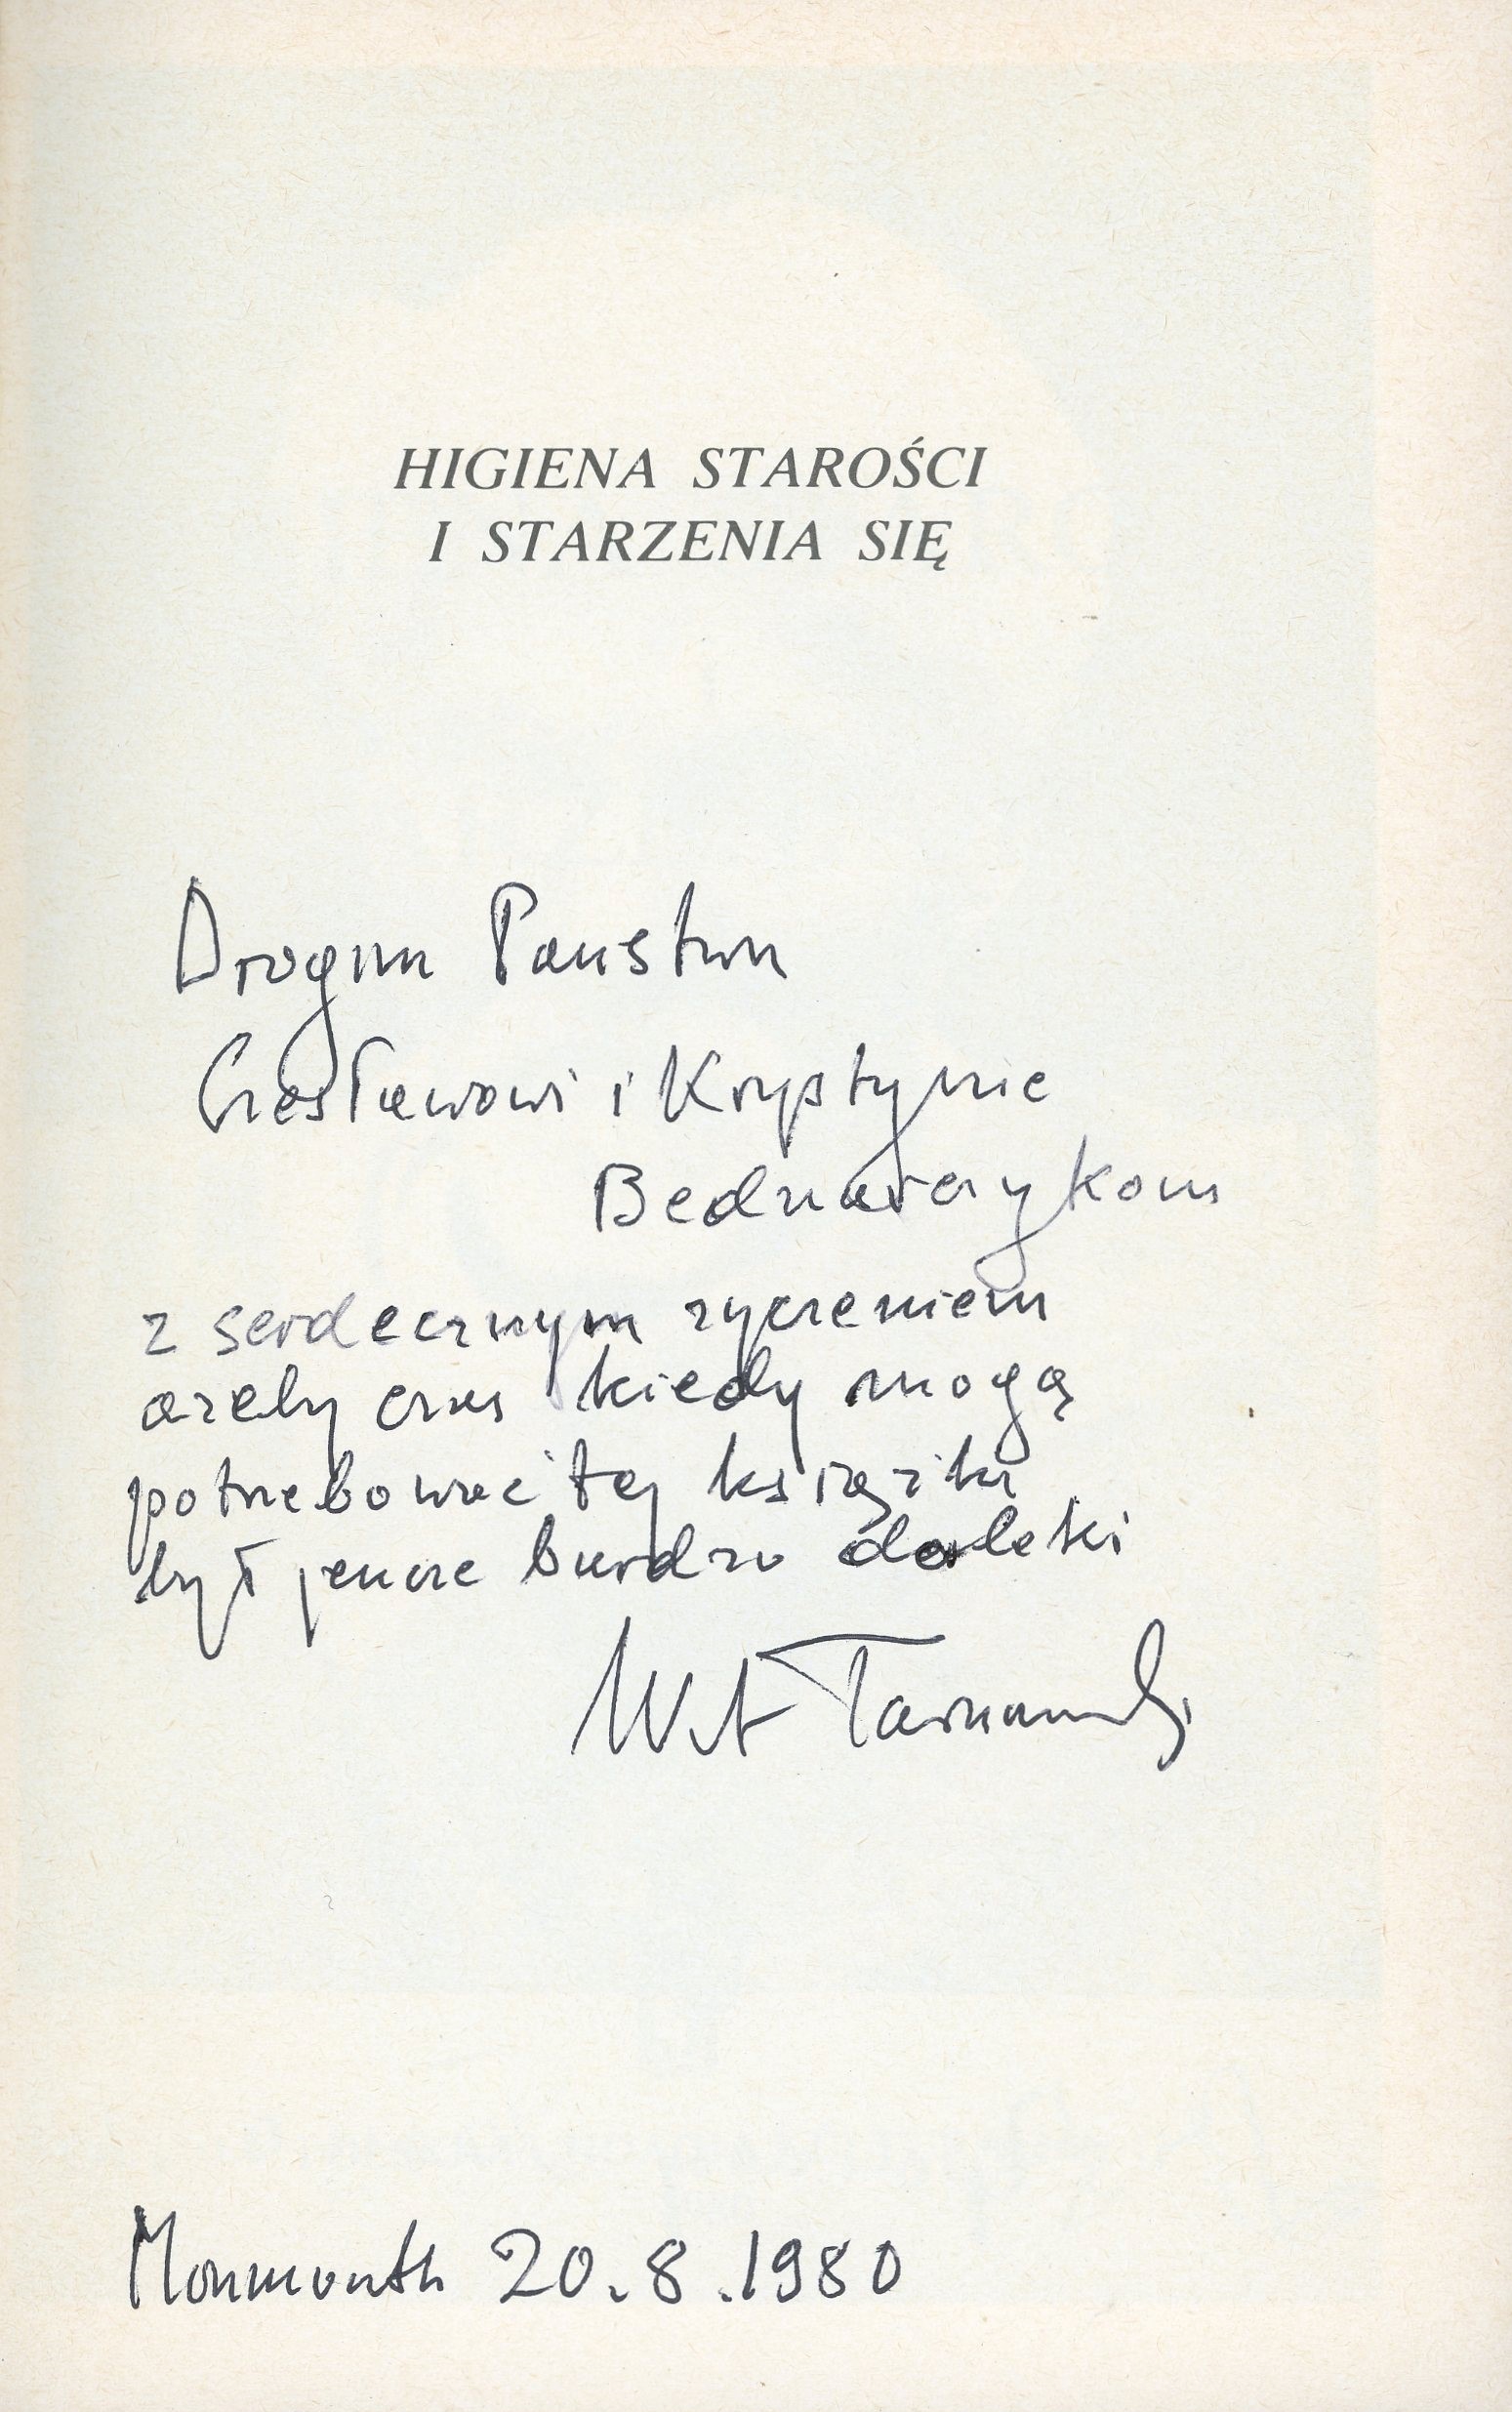 HIGIENA STAROŚCI
I STARZENIA SIĘ
Drogim Państwu
Czesławowi i Krystynie
Bednarczykom
z serdecznym zyczeniem
azeby czas kiedy mogą
potrzebowac tej książki
był jeszcze bardzo daleki
Wit Tarnawski
Monmouth 20.8.1980